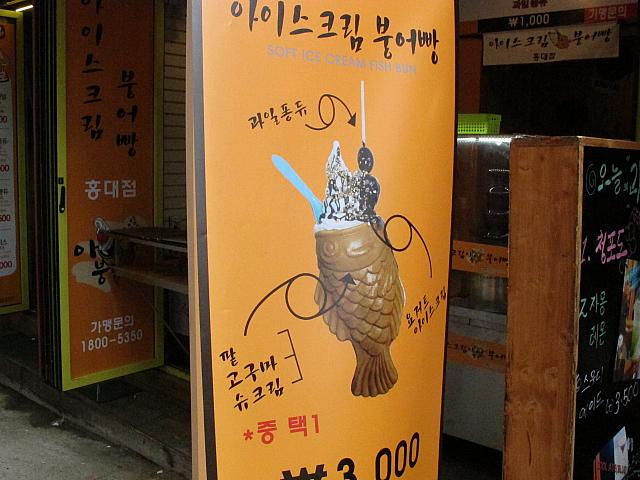 아이스크림 붕어빵
SOFT ICE CREAM FISH BUN
과일퐁듀
요거트
아이스크림
팥
고구마
슈크림
*중 택1
₩3,000
아이스크림
붕어빵
홍대점
가맹문의
1800-5350
₩1,000
가맹문의
아이스크림 붕어빵
홍대점
오늘의
1. 청포도
2. 자몽
레몬
3,500